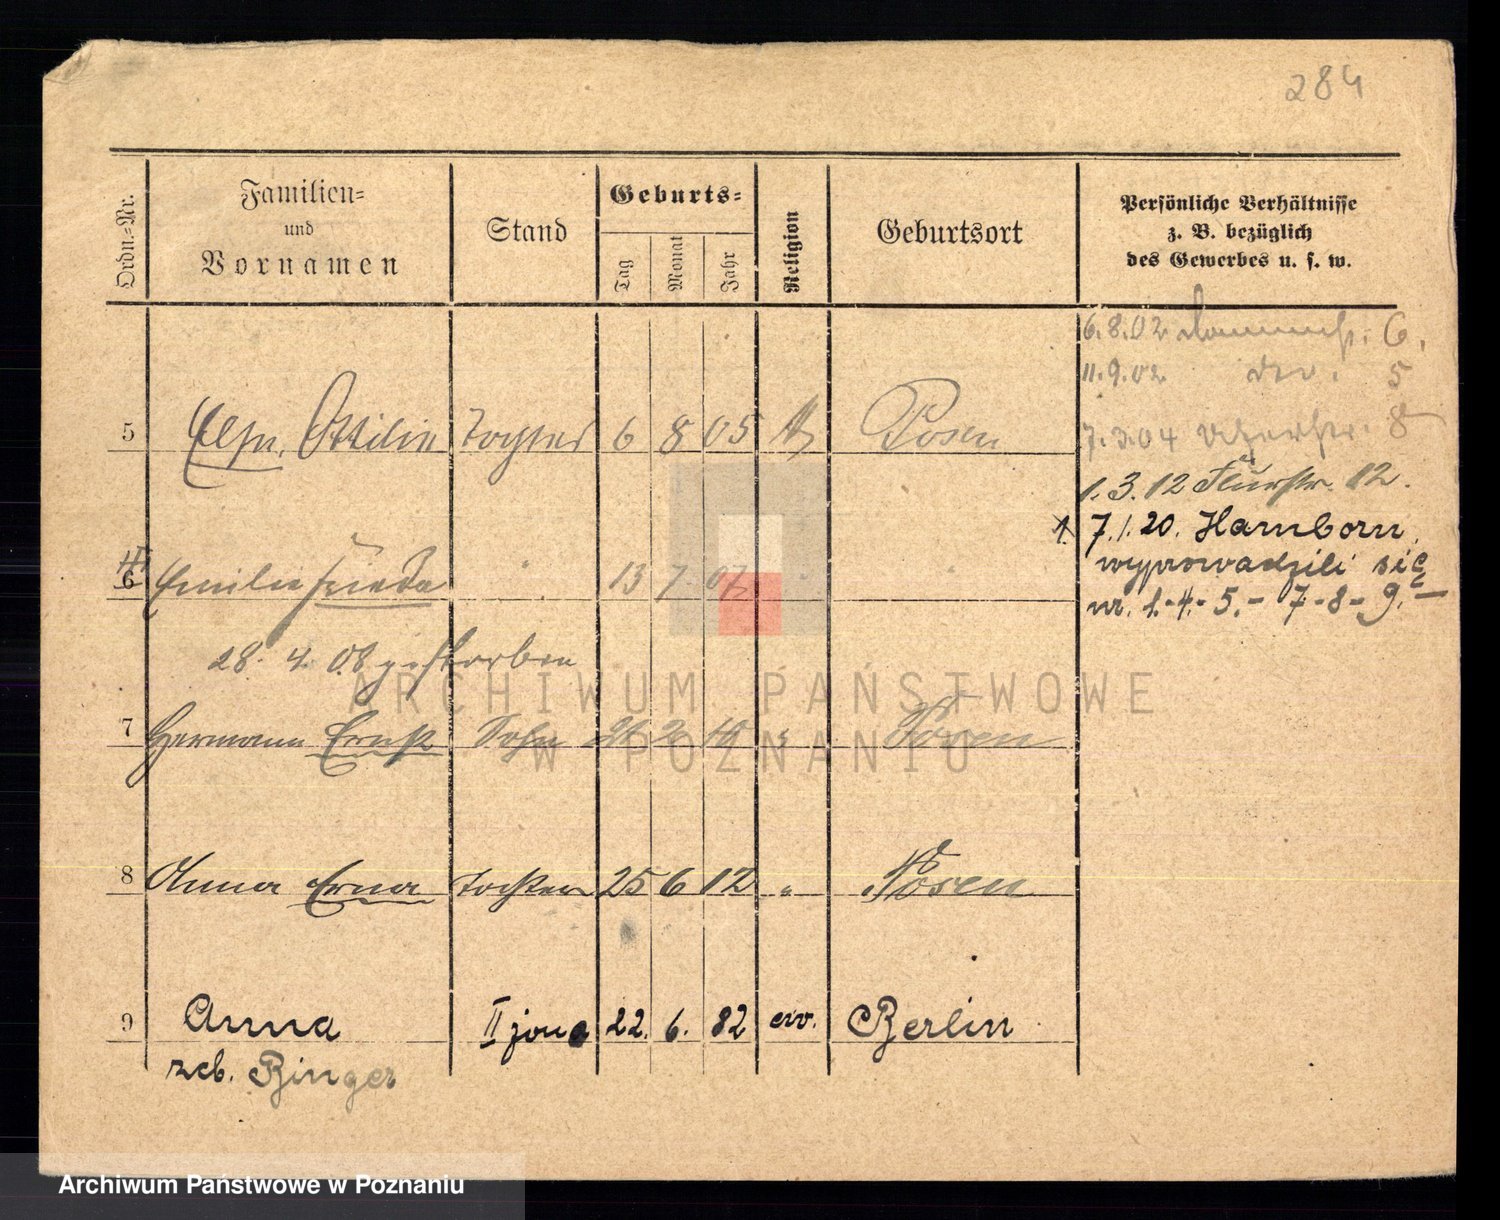 284
Ordn.-Nr.
Familien-
und
Vornamen
Stand
Geburts-
Tag
Monat
Jahr
Religion
Geburtsort
Persönliche Verhältnisse
z. B. bezüglich
des Gewerbes u. s. w.
6.8.02 6.
11.9.02 5
7.3.04 8
5 Else Ottilie Tochter 6 8 05 Posen
1.3.12 Flurstr. 12.
1. 7.1.20. Hamborn
wyprowadzili się
nr. 1.-4.- 5.- 7-8-9.-
6 Emilie Frieda " 13 7 07 " "
28. 4. 08 gestorben
7 Hermann Ernst Sohn 2 10 " Posen
8 Anna Erna Tochter 25 6 12 " Posen
9 Anna II żona 22. 6. 82 ew. Berlin
zeb. Binger
ARCHIWUM PAŃSTWOWE
W POZNANIU
Archiwum Państwowe w Poznaniu